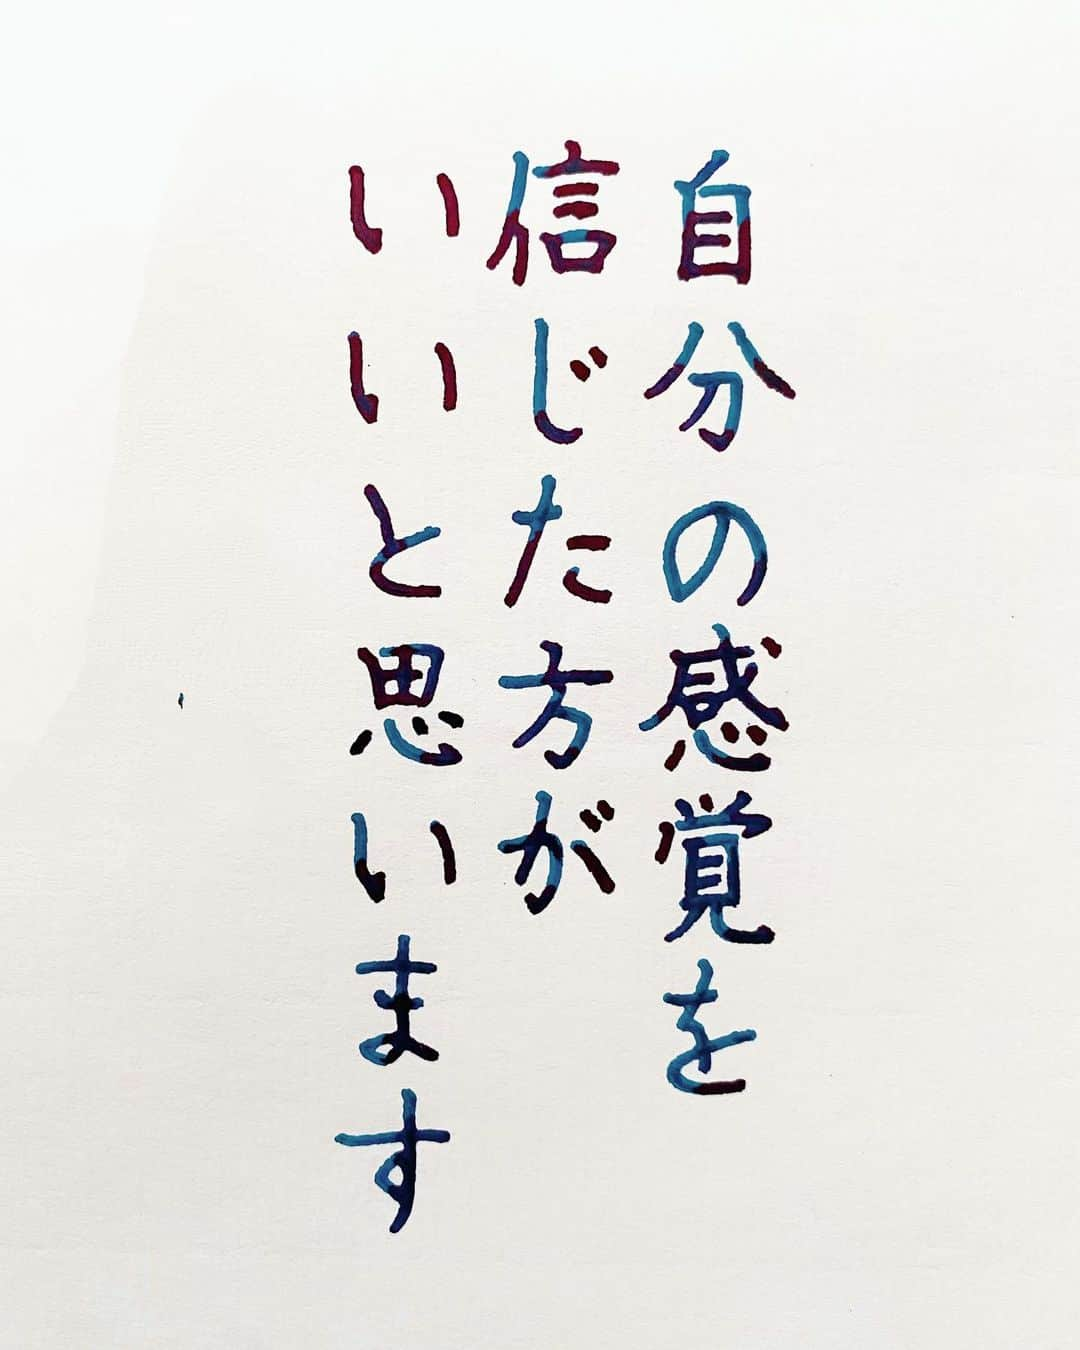 自分の感覚を
信じた方が
いいと思います